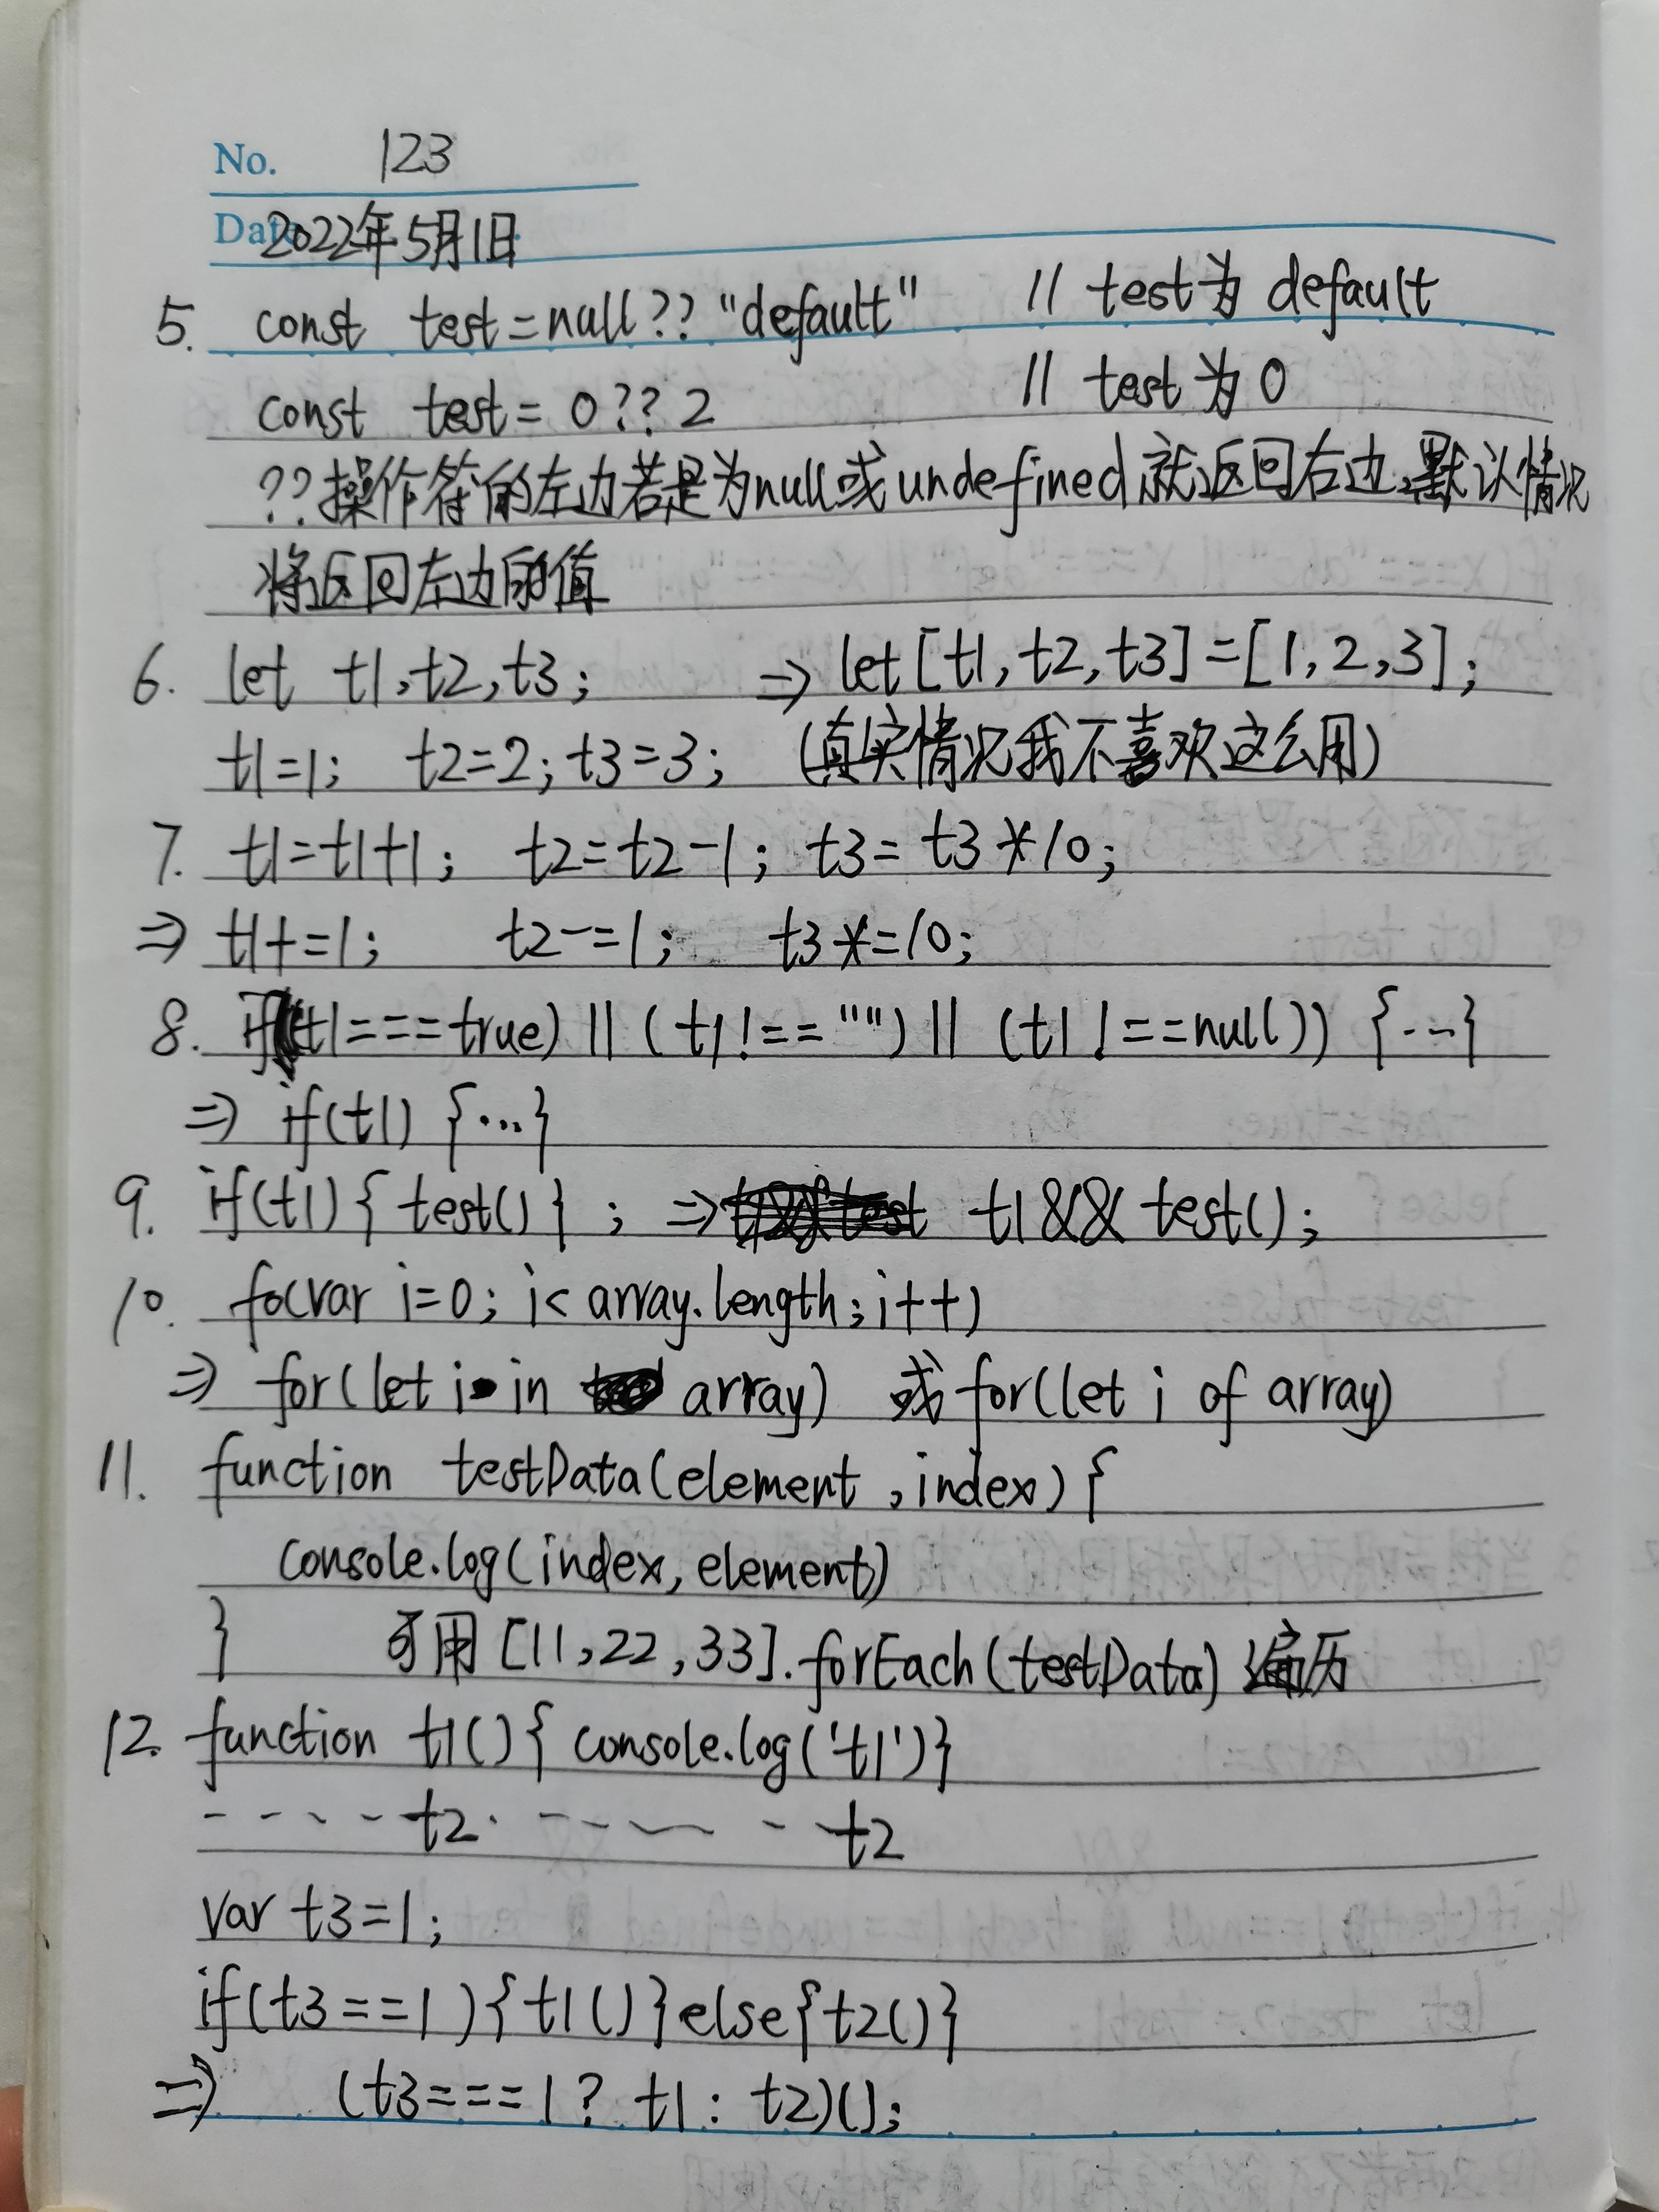 No. 123
Date 2022年5月1日
5. const test=null??"default" // test为default
const test=0??2 // test为0
??操作符的左边若是为null或undefined就返回右边,默认情况
将返回左边的值
6. let t1,t2,t3; => let[t1,t2,t3]=[1,2,3];
t1=1; t2=2; t3=3; (真实情况我不喜欢这么用)
7. t1=t1+1; t2=t2-1; t3=t3*10;
=> t1+=1; t2-=1; t3*=10;
8. if((t1===true)||(t1!=="")||(t1!==null)) {---}
=> if(t1) {...}
9. if(t1){test()}; => t1&&test();
10. fo(var i=0; i<array.length; i++)
=> for(let i in array) 或for(let i of array)
11. function testData(element,index){
console.log(index,element)
} 可用[11,22,33].forEach(testData)遍历
12. function t1(){console.log('t1')}
----t2.------t2
var t3=1;
if(t3==1){t1()}else{t2()}
=> (t3===1? t1: t2)();